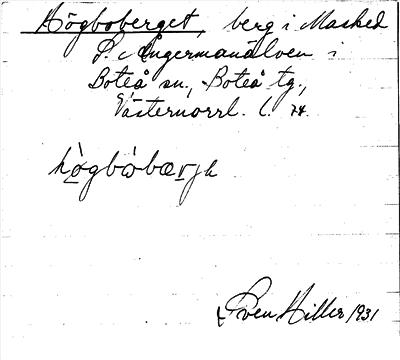 Högboberget, berg i Masked
P. Ångermanälven i
Boteå sn, Boteå tg.,
Västernorrl. l.
hògbòbærjh
Sven Hiller 1931